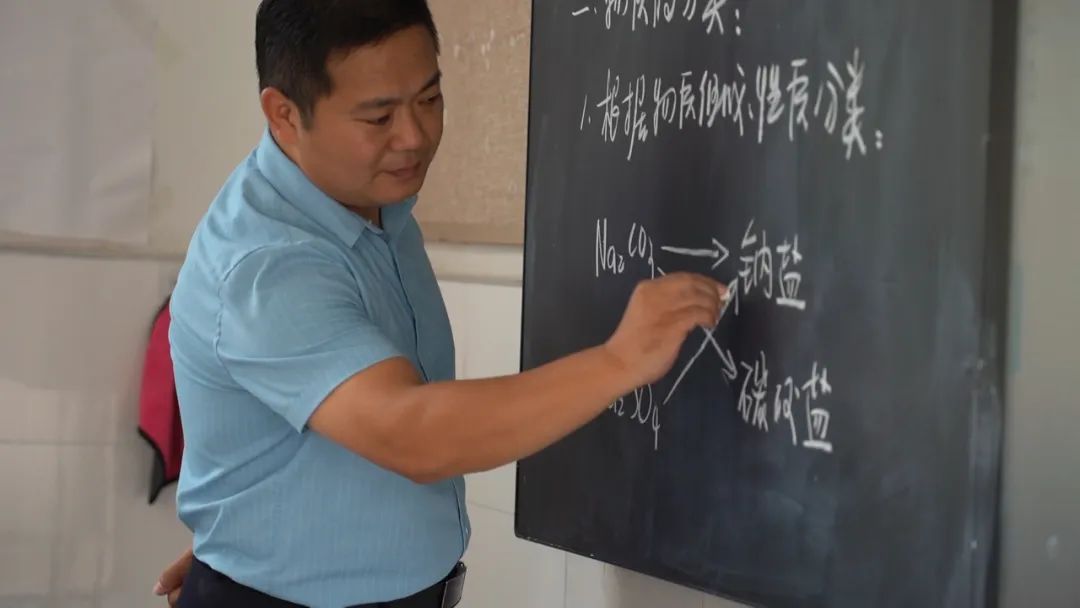 二.物质的分类：
1.根据物质组成、性质分类：
Na₂CO₃ → 钠盐
SO₄ 碳酸盐